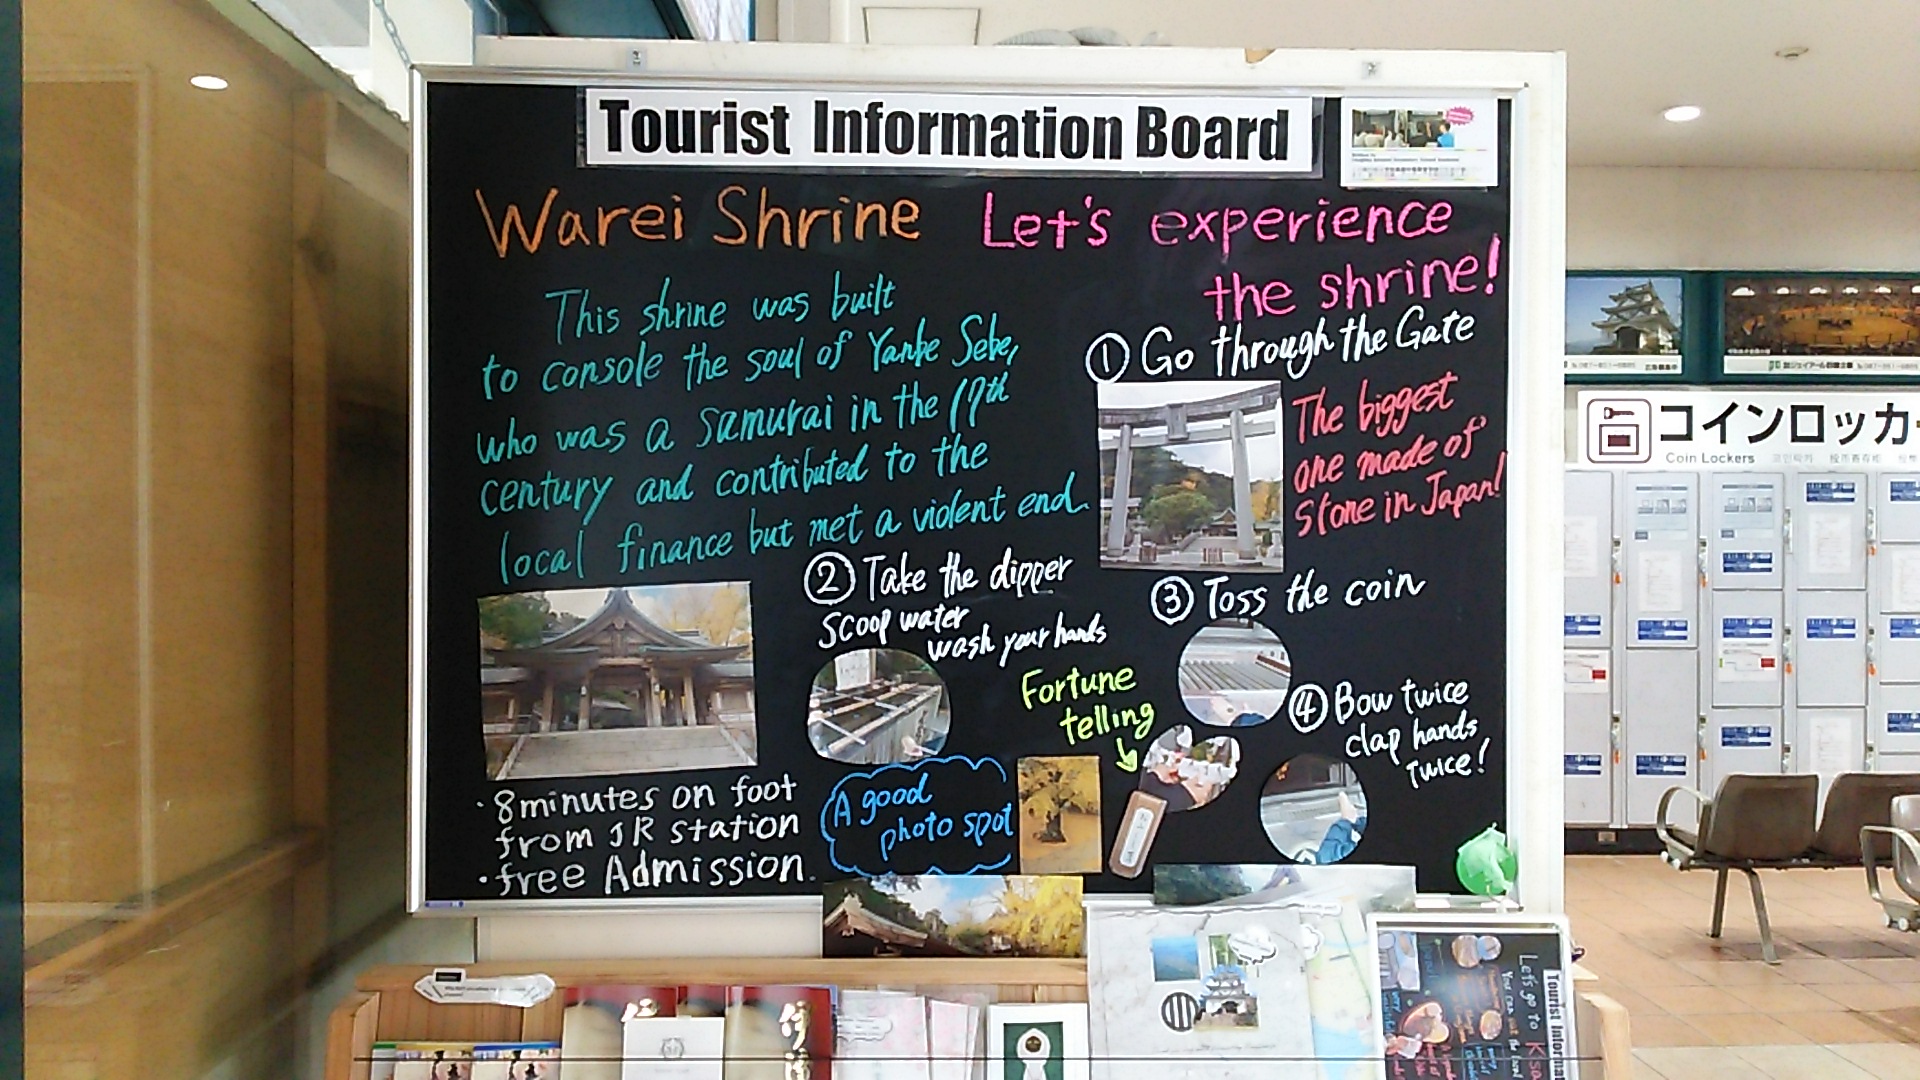 Tourist Information Board
Warei Shrine
This shrine was built
to console the soul of Yanbe Sebe,
who was a samurai in the 17th
century and contributed to the
local finance but met a violent end.
・8minutes on foot
from JR station
・free Admission.
Let's experience
the shrine!
① Go through the Gate
The biggest
one made of
stone in Japan!
② Take the dipper
scoop water
wash your hands
③ Toss the coin
Fortune
telling
④ Bow twice
clap hands
twice!
A good
photo spot
コインロッカー
Coin Lockers
Tourist Informat
Let's go to